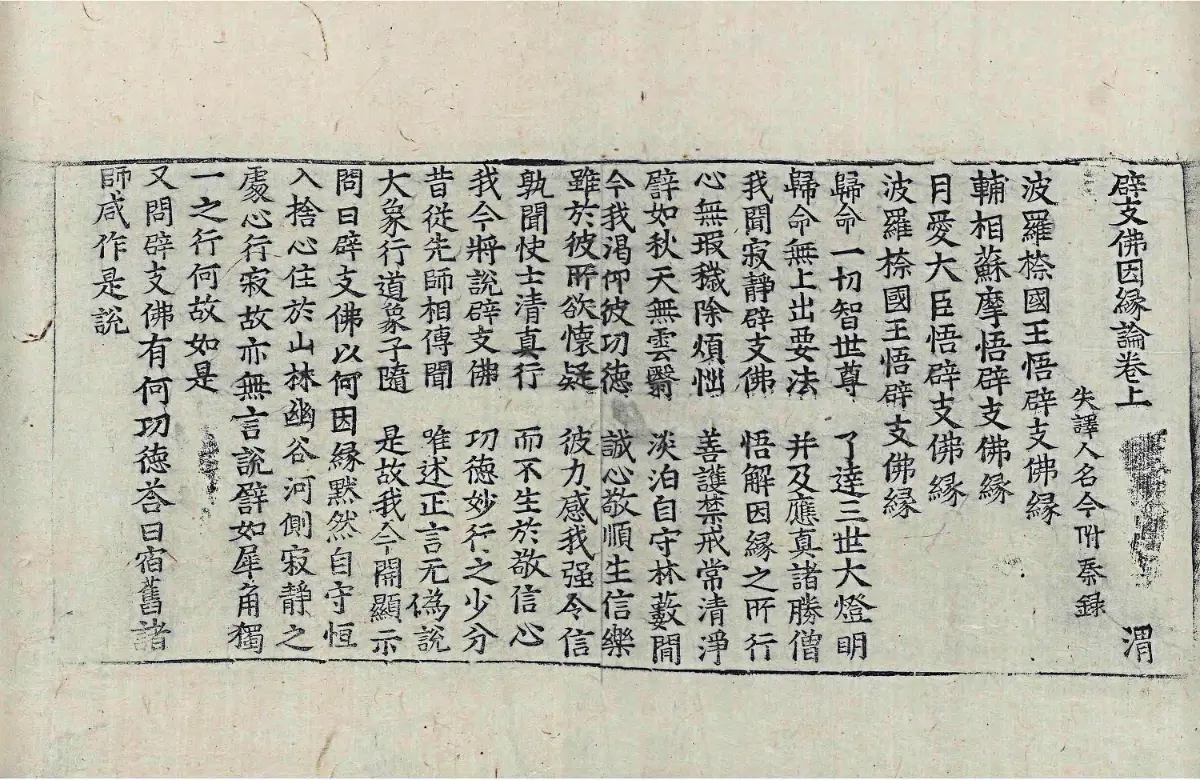 辟支佛因緣論卷上 渭
失譯人名今附秦録
波羅㮈國王悟辟支佛緣
輔相蘇摩悟辟支佛緣
月愛大臣悟辟支佛緣
波羅㮈國王悟辟支佛緣
歸命一切智世尊 了達三世大燈明
歸命無上出要法 并及應真諸勝僧
我聞寂靜辟支佛 悟解因緣之所行
心無瑕穢除煩惱 善護禁戒常清淨
譬如秋天無雲翳 淡泊自守林藪間
今我渴仰彼功德 誠心敬順生信樂
雖於彼所欲懷疑 彼力感我强令信
孰聞快士清真行 而不生於敬信心
我今將說辟支佛 功德妙行之少分
昔從先師相傳聞 唯述正言无偽說
大象行道象子隨 是故我今開顯示
問曰辟支佛以何因緣默然自守恒
入捨心住於山林幽谷河側寂静之
處心行寂故亦無言說譬如犀角獨
一之行何故如是
又問辟支佛有何功德荅曰宿舊諸
師咸作是說